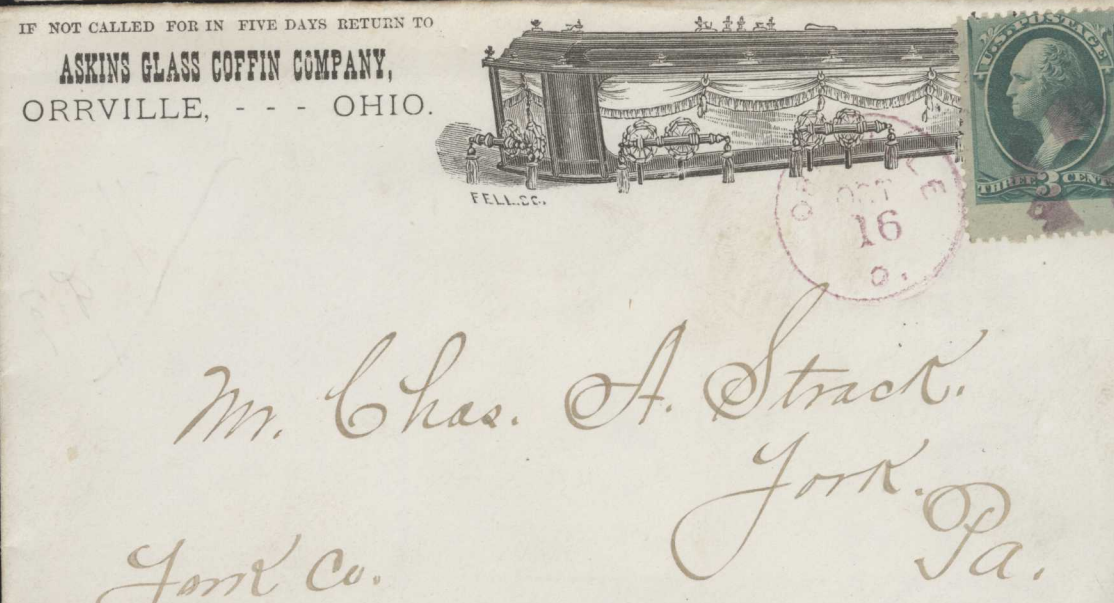 IF NOT CALLED FOR IN FIVE DAYS RETURN TO
ASKINS GLASS COFFIN COMPANY,
ORRVILLE, - - - OHIO.
FELL. CO.
U.S. POSTAGE
THREE 3 CENTS
OCT
16
O.
Mr. Chas. A. Strack.
York.
Pa.
York Co.